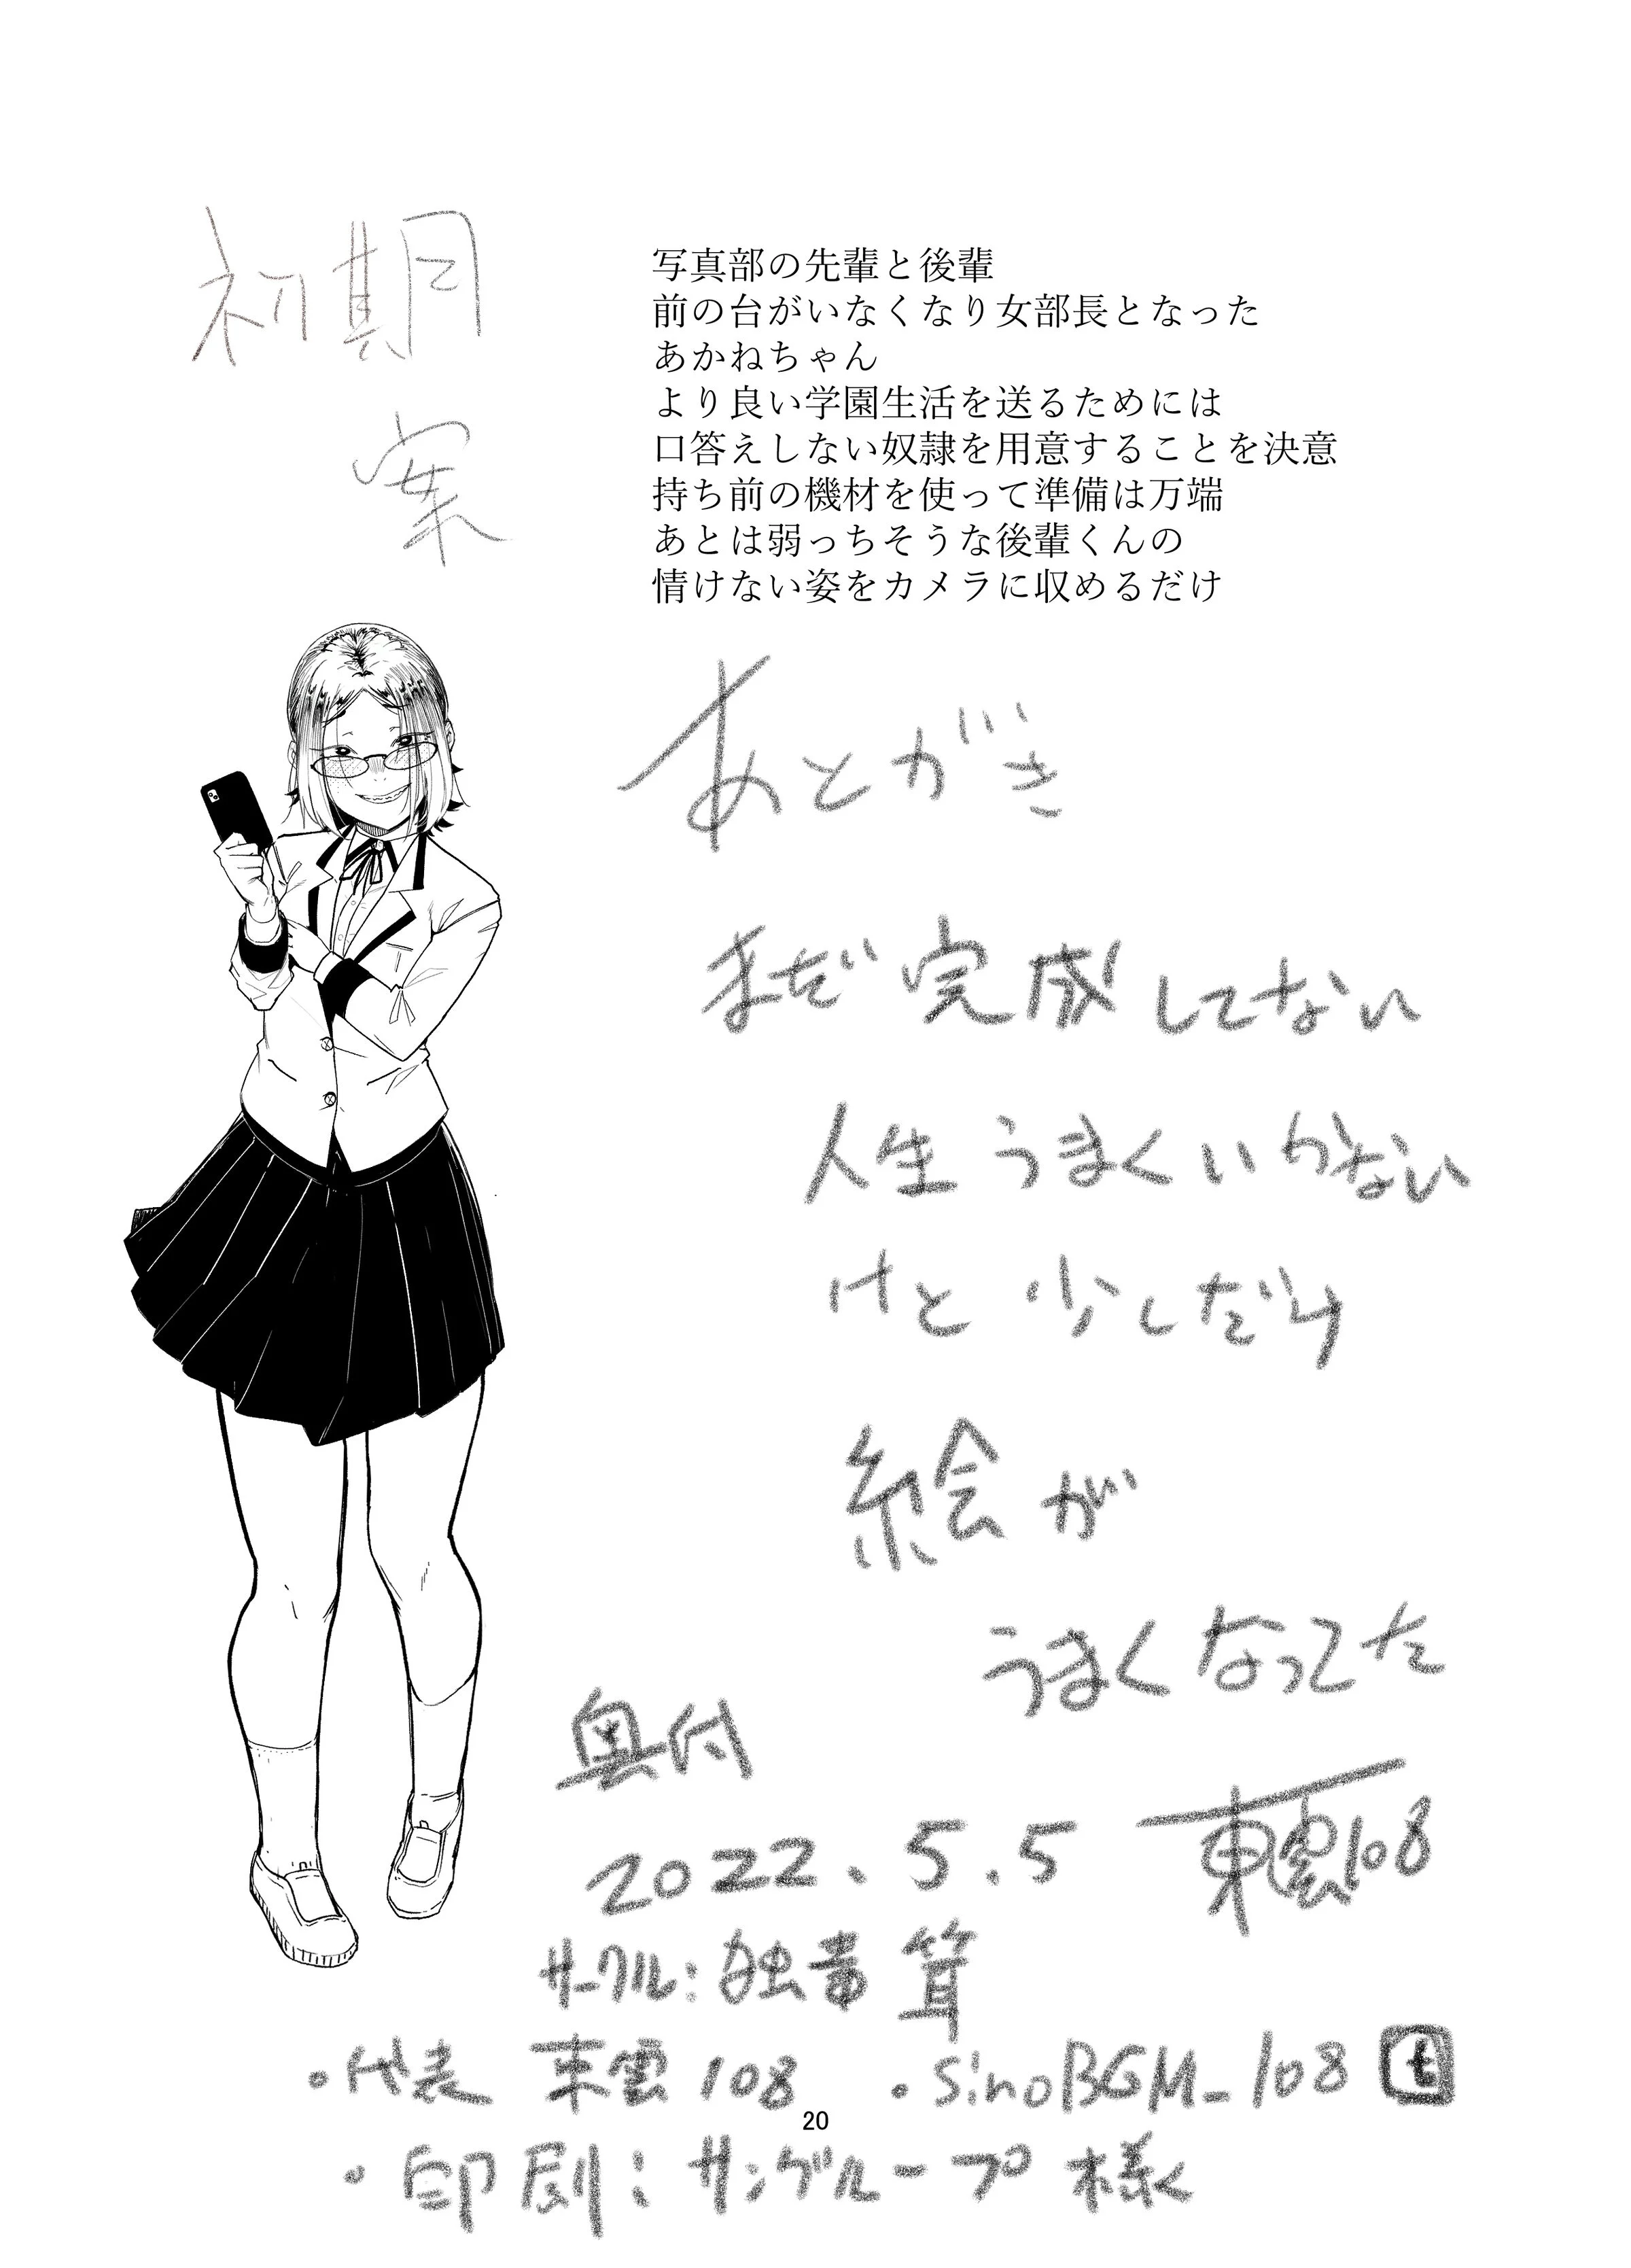 初期
案
写真部の先輩と後輩
前の台がいなくなり女部長となった
あかねちゃん
より良い学園生活を送るためには
口答えしない奴隷を用意することを決意
持ち前の機材を使って準備は万端
あとは弱っちそうな後輩くんの
情けない姿をカメラに収めるだけ
あとがき
まだ完成してない
人生うまくいかない
けど少しだけ
絵が
うまくなってた
東雲108
奥付
2022.5.5
サークル:独壇茸
・代表 東雲108 ・SinoBGM_108 t
20
・印刷:サングループ様